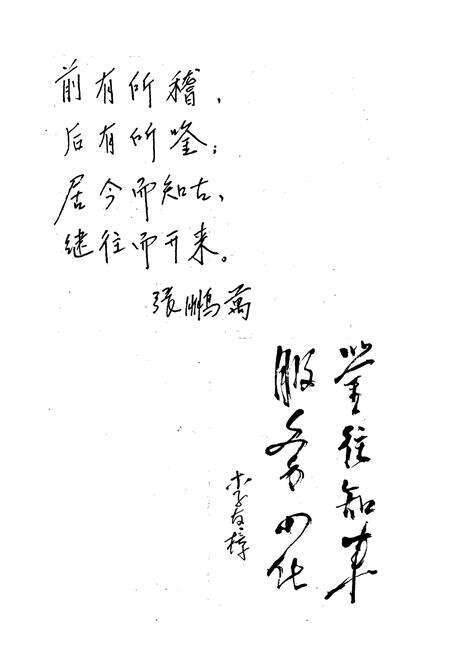 前有所稽,
后有所鉴;
居今而知古,
继往而开来。
張鵬萬
鉴往知来
服务四化
李友梓